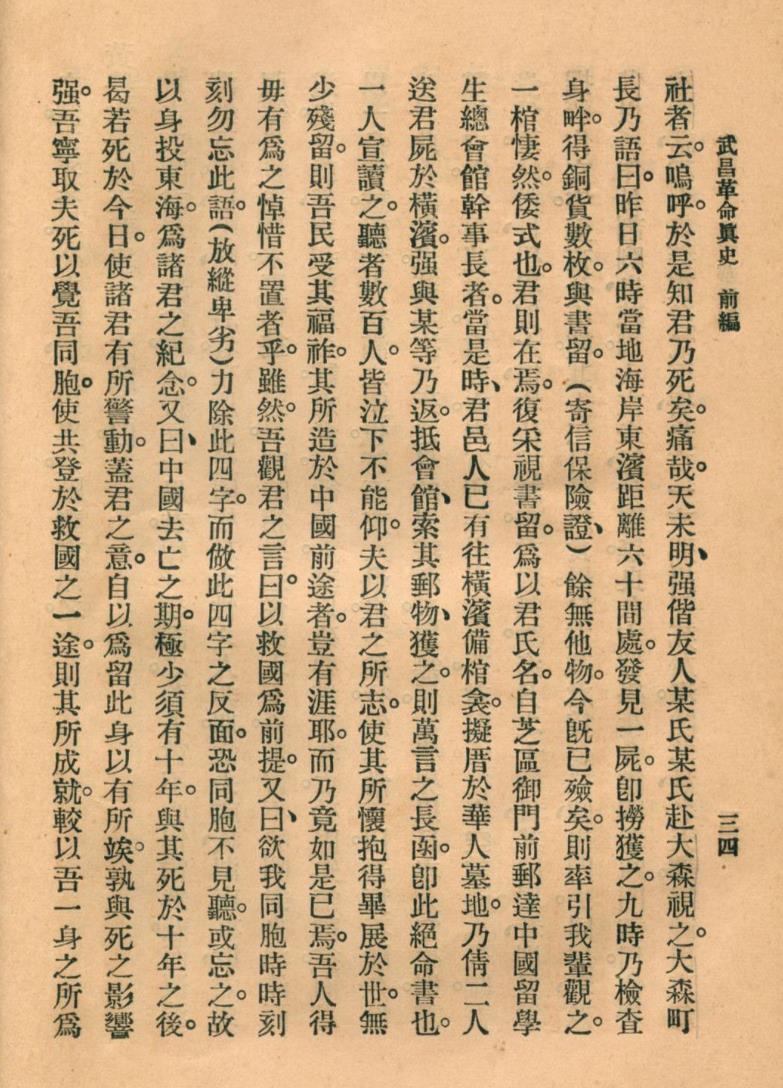 武昌革命眞史　前編
三四
社者云。嗚呼。於是知君乃死矣。痛哉。天未明、强偕友人某氏某氏赴大森視之。大森町
長乃語曰。昨日六時當地海岸東濱距離六十間處。發見一屍。卽撈獲之。九時乃檢查
身畔。得銅貨數枚。與書留。(寄信保險證、)餘無他物。今旣已殮矣。則率引我輩觀之。
一棺悽然。倭式也。君則在焉。復罙視書留。爲以君氏名。自芝區御門前郵達中國留學
生總會館幹事長者。當是時、君邑人已有往橫濱備棺衾。擬厝於華人墓地。乃倩二人
送君屍於橫濱。强與某等乃返。抵會館、索其郵物、獲之。則萬言之長函。卽此絕命書也。
一人宣讀之。聽者數百人。皆泣下不能仰。夫以君之所志。使其所懷抱得畢展於世。無
少殘留。則吾民受其福祚。其所造於中國前途者。豈有涯耶。而乃竟如是已焉。吾人得
毋有爲之悼惜不置者乎。雖然。吾觀君之言曰。以救國爲前提。又曰、欲我同胞時時刻
刻勿忘此語。(放縱卑劣)力除此四字。而做此四字之反面。恐同胞不見聽。或忘之。故
以身投東海。爲諸君之紀念。又曰、中國去亡之期。極少須有十年。與其死於十年之後。
曷若死於今日。使諸君有所警動。蓋君之意。自以爲留此身以有所竢。孰與死之影響
强。吾寧取夫死以覺吾同胞。使共登於救國之一途。則其所成就。較以吾一身之所爲